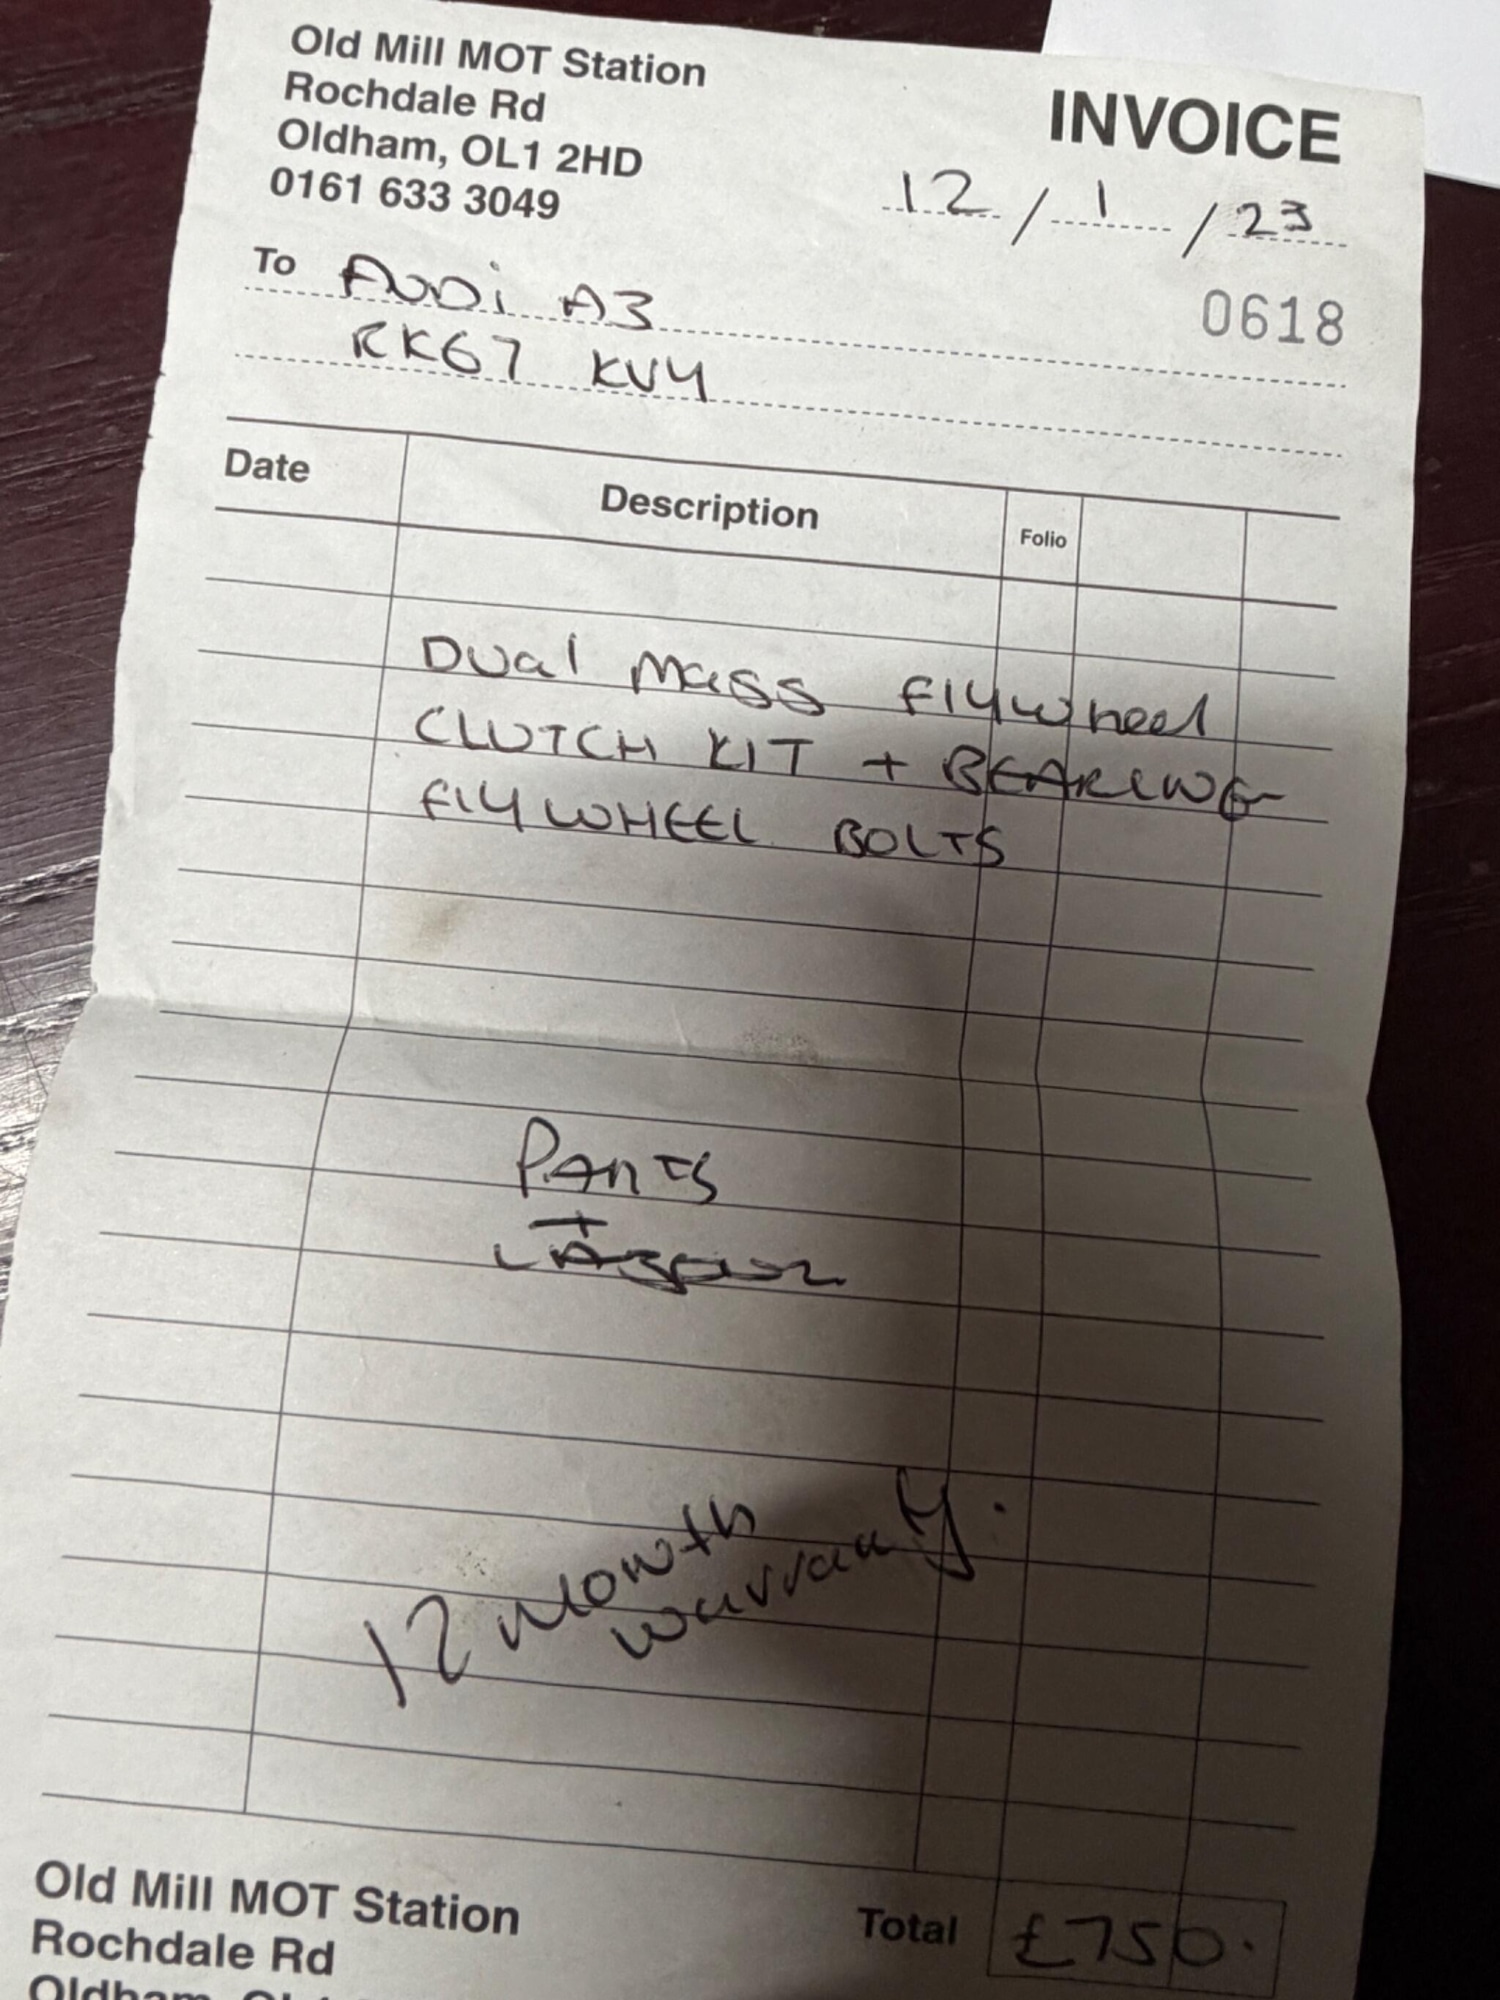 Old Mill MOT Station
Rochdale Rd
Oldham, OL1 2HD
0161 633 3049
INVOICE
12 / 1 / 23
To AUDi A3
0618
RK67 KVY
Date Description Folio
Dual Mass flywheel
CLUTCH KIT + BEARING
flYWHEEL BOLTS
PARTS
+
LABOUR
12 Month
warranty.
Old Mill MOT Station
Total £750.
Rochdale Rd